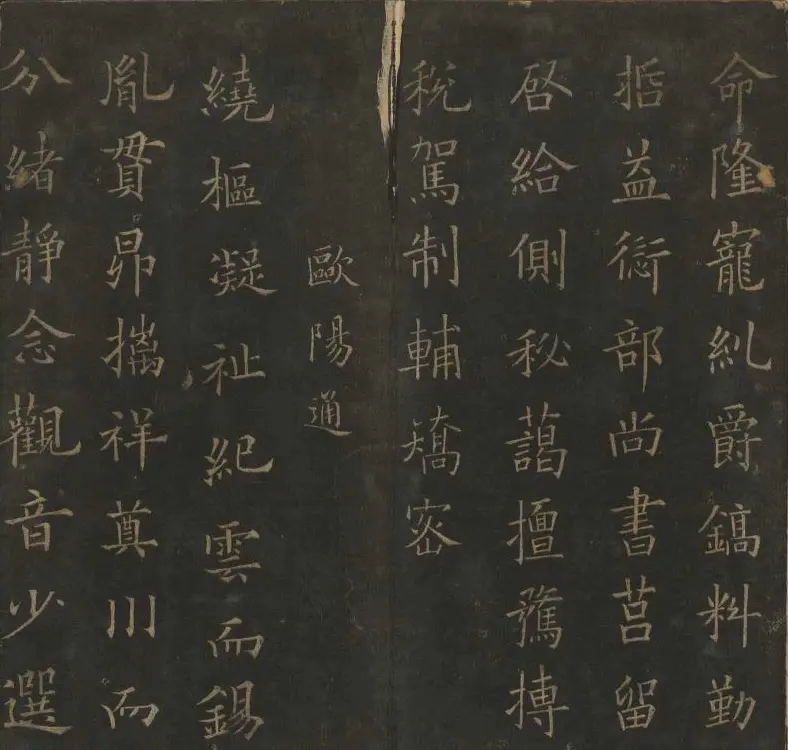 命隆寵糺爵鎬料勤
括益衍部尚書莒留
啓給側秘藹擅驚摶
税駕制輔矯密
歐陽通
繞樞凝祉紀雲而錫
胤貫昴攜祥奠川而
分緒靜念觀音少選